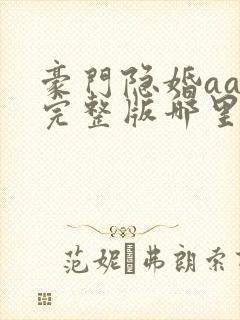 豪門隐婚aa
完整版哪里
范妮·弗朗索